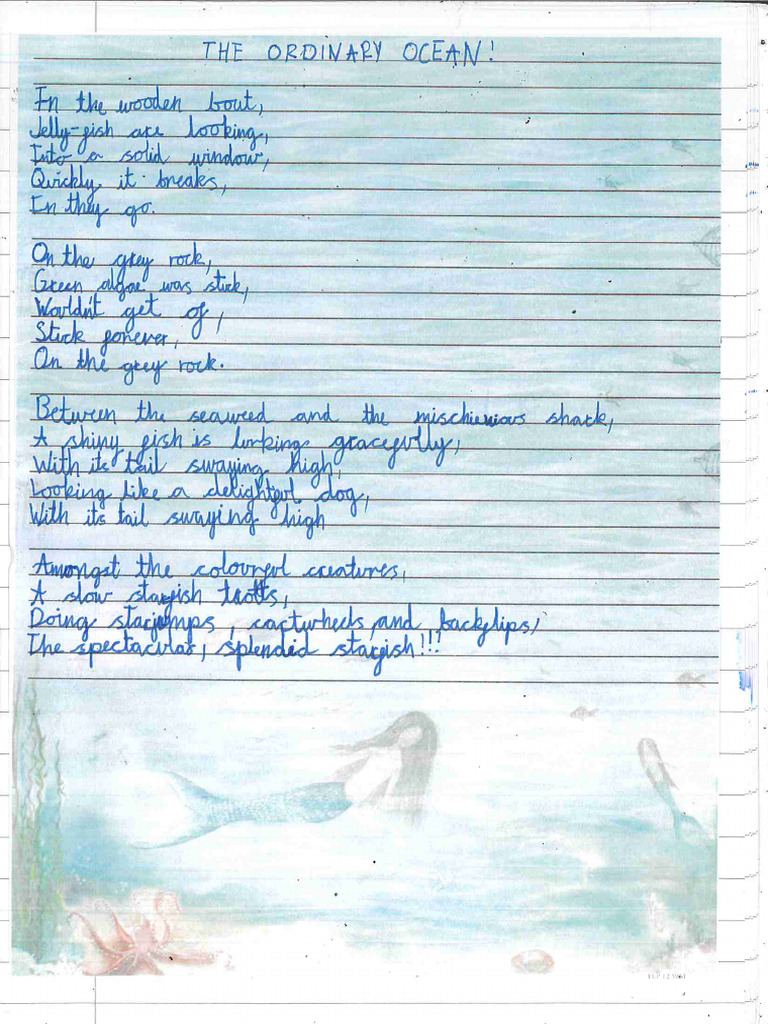 THE ORDINARY OCEAN!
In the wooden bout,
Jelly-fish are looking,
Into a solid window,
Quickly it breaks,
In they go.
On the grey rock,
Green algae was stuck,
Wouldn't get of,
Stuck forever,
On the grey rock.
Between the seaweed and the mischievious shark,
A shiny fish is lurking gracefully,
With its tail swaying high,
Looking like a delightful dog,
With its tail swaying high
Amongst the colourful creatures,
A slow starfish trotts,
Doing starjumps, cartwheels, and backflips,
The spectacular, splendid starfish!!!